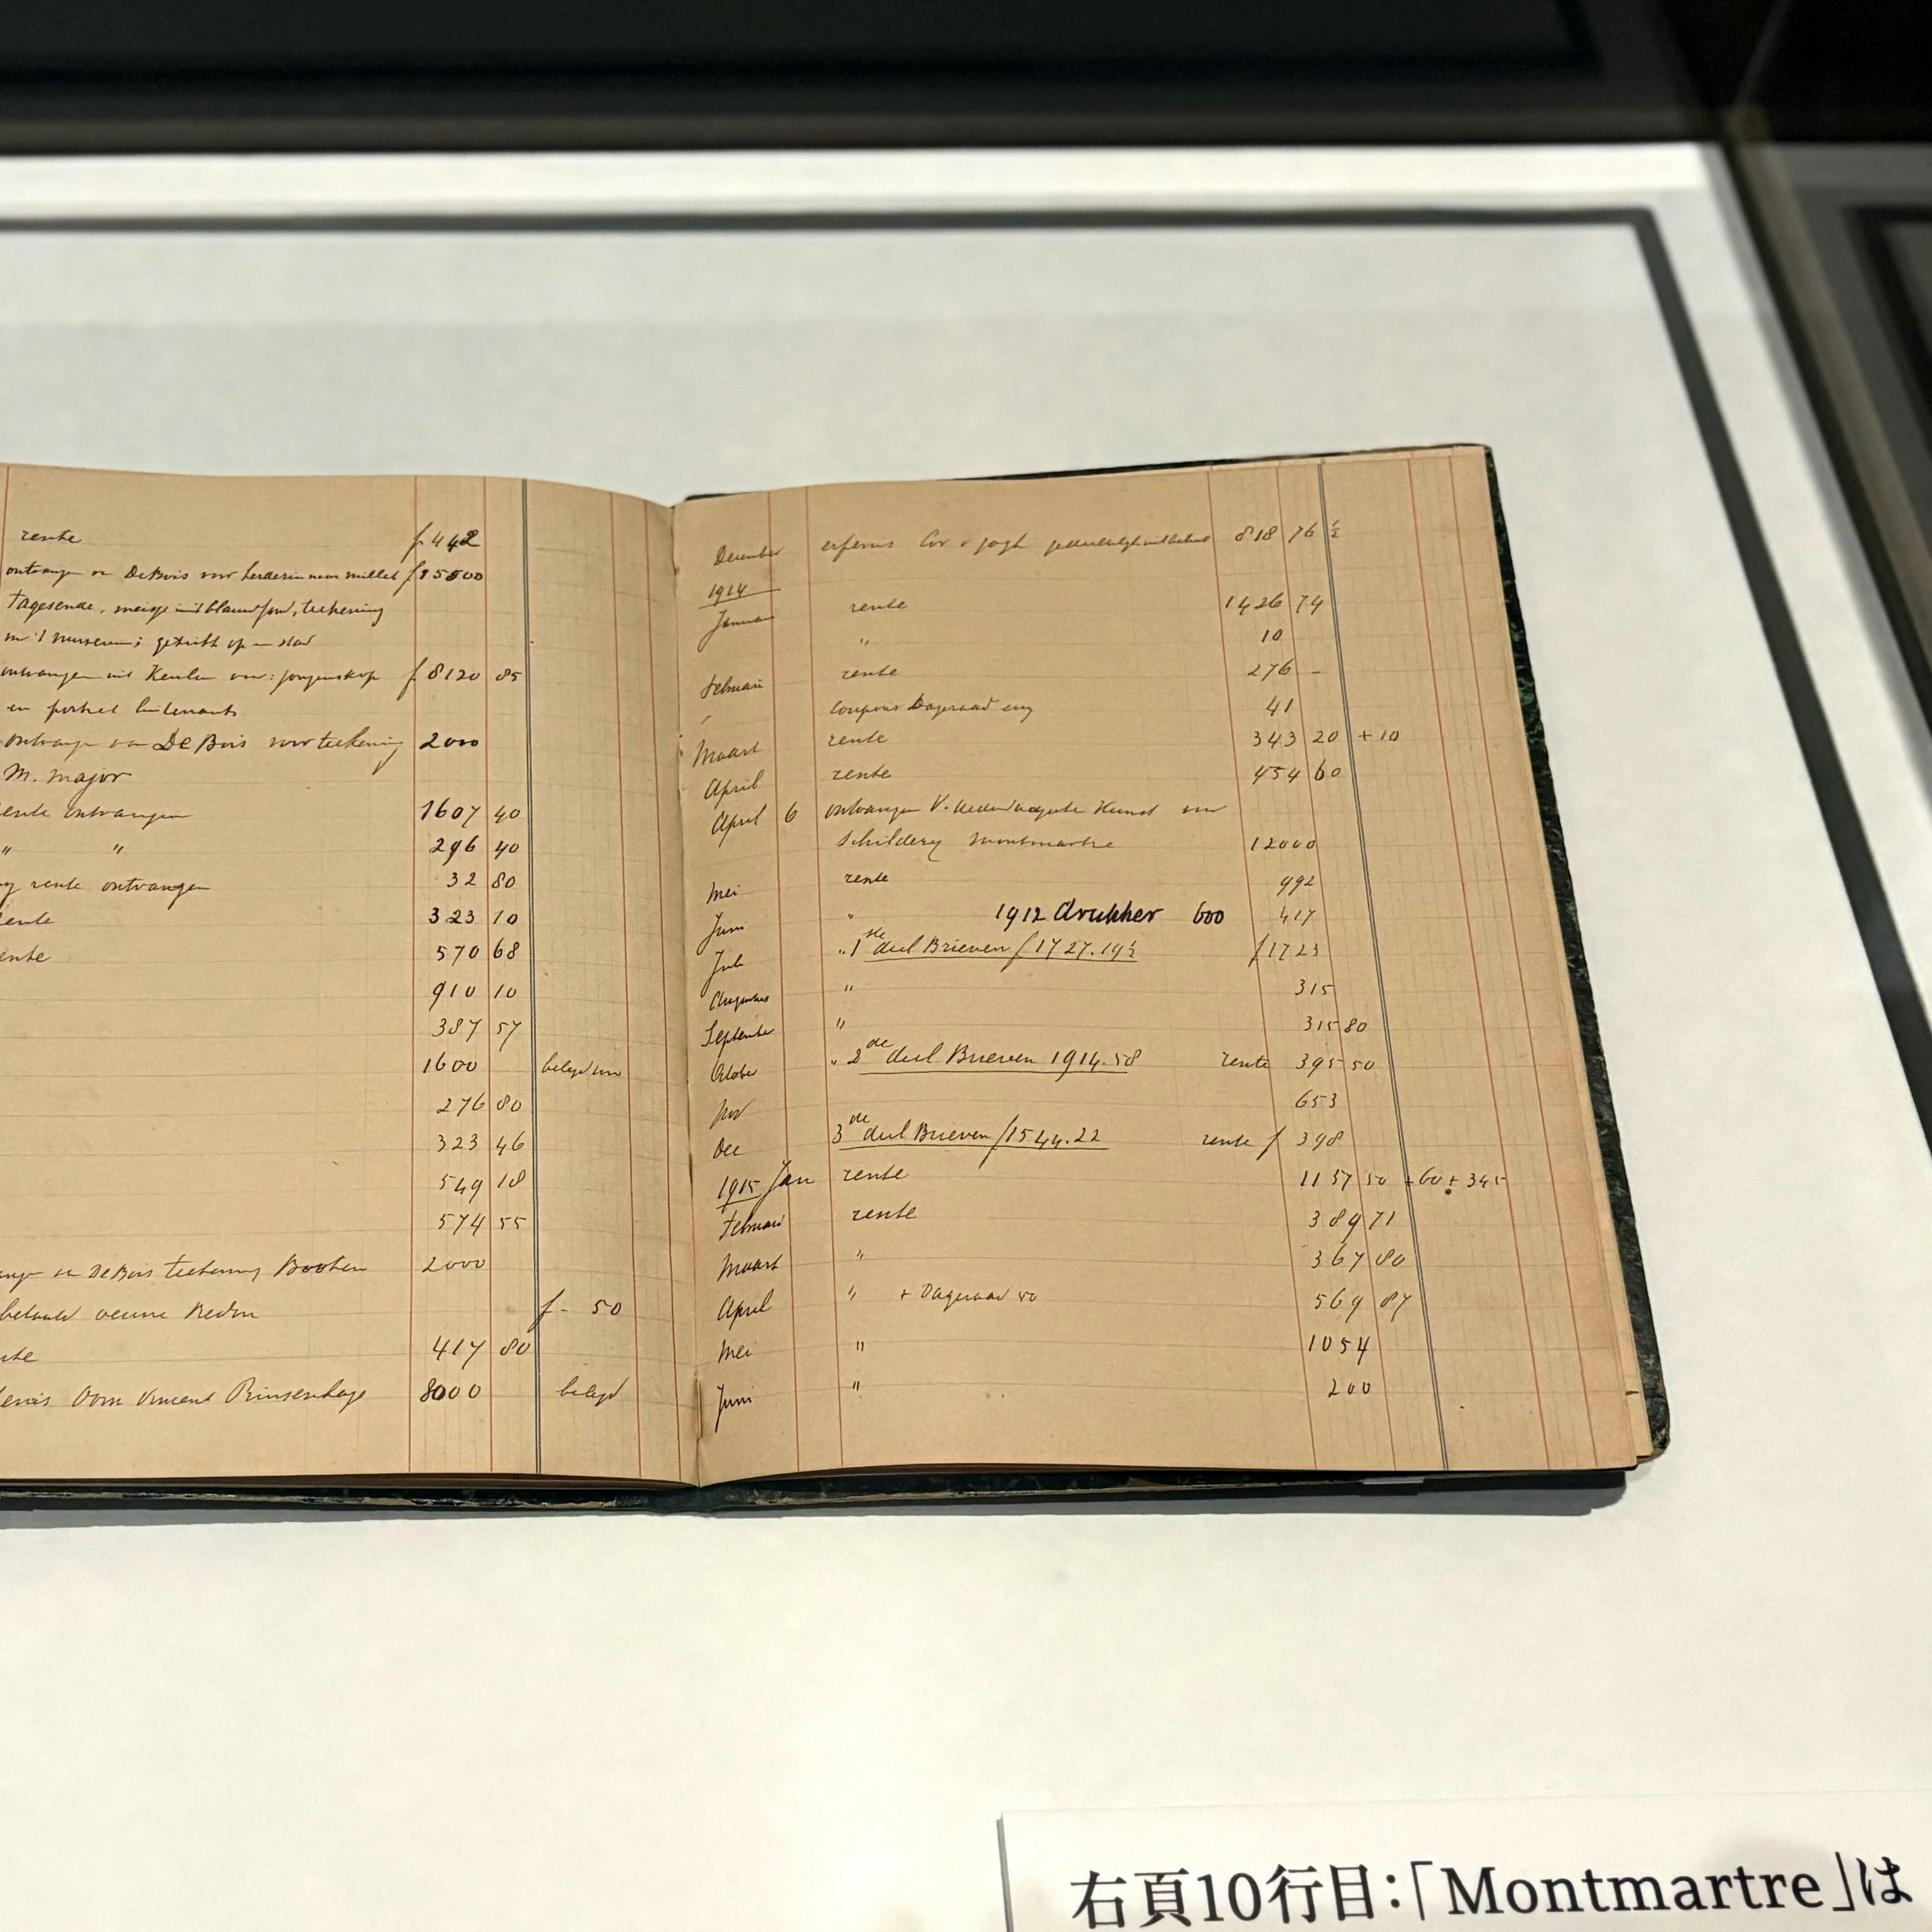 rente f 442
ontvangen van De Bois voor herderin naar millet f 15000
Tagesende, meisje met blauw fond, teekening
in 't museum; getikt op
ontvangen uit Keulen voor: jongenskop f 8120 85
en portret luitenant
ontvangen van De Bois voor teekening 2000
M. major
rente ontvangen 1607 40
" " 296 40
rente ontvangen 32 80
rente 323 10
rente 570 68
910 10
387 57
1600 belegd
276 80
323 46
549 18
574 55
De Bois teekening Booten 2000
betaald veuve Redon f - 50
417 80
Oom Vincent Prinsenhage 8000 belegd
December erfenis Cor v gogh 818 76 ½
1914
Januari rente 1426 74
" 10
Februari rente 276 -
coupons Dageraad 41
Maart rente 343 20 + 10
April rente 454 60
April 6 ontvangen v. Kunst voor
Schildery Montmartre 12000
Mei rente 992
Juni " 1912 drukker 600 417
Juli " 1ste deel Brieven f 1727.19½ f 1723
Augustus " 315
September " 315 80
October " 2de deel Brieven 1914.58 rente 395 50
Nov 653
Dec 3de deel Brieven f 1544.22 rente f 398
1915 Jan rente 1157 50 + 60 + 345
Februari rente 389 71
Maart " 367 80
April " + Dageraad 50 569 87
Mei " 1054
Juni " 200
右頁10行目：「Montmartre」は